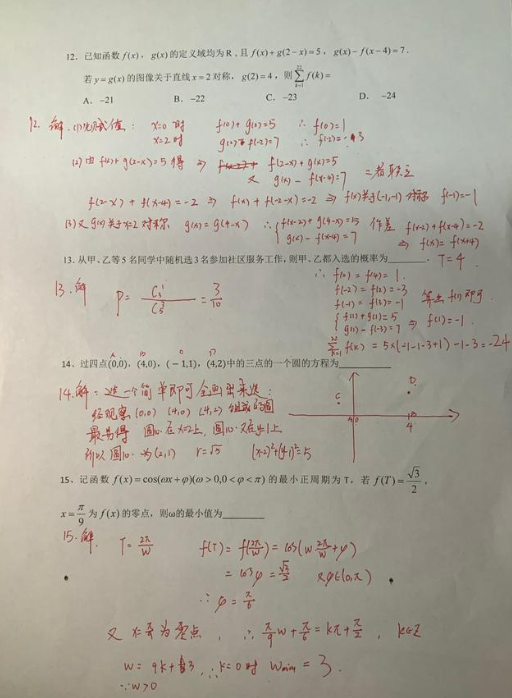 12. 已知函数 f(x), g(x)的定义域均为 R, 且 f(x)+g(2-x)=5, g(x)-f(x-4)=7.
若 y=g(x)的图像关于直线 x=2 对称, g(2)=4, 则∑f(k)=
A. -21 B. -22 C. -23 D. -24
12. 解. (1)先赋值: x=0 时 f(0)+g(2)=5 ∴ f(0)=1
x=2 时 g(2)-f(-2)=7 ∴ f(-2)=-3
(2) 由 f(x)+g(2-x)=5 得 ⇒ f(2-x)+g(x)=5
又 g(x)-f(x-4)=7 二者联立
f(2-x)+f(x-4)=-2 ⇒ f(x)+f(-2-x)=-2 ⇒ f(x)关于(-1,-1)对称 f(-1)=-1
(3) 又 g(x)关于x=2对称, g(x)=g(4-x) ∴ f(x-2)+g(4-x)=5 作差 f(x-2)+f(x-4)=-2
g(x)-f(x-4)=7 ⇒ f(x)=f(x+4)
13. 从甲、乙等 5 名同学中随机选 3 名参加社区服务工作, 则甲、乙都入选的概率为________. T=4
∴ f(0)=f(4)=1.
13. 解 P=C₃¹/C₅³=3/10
f(-2)=f(2)=-3
f(-1)=f(3)=-1 算出 f(1) 即可
f(1)+g(1)=5
g(1)-f(-3)=7 ⇒ f(1)=-1.
∑f(k)=5×(-1-1-3+1)-1-3=-24
14. 过四点(0,0), (4,0), (-1,1), (4,2)中的三点的一个圆的方程为________
14. 解:选一个简单即可
经观察 (0,0) (4,0) (4,2) 组成的圆
最易得 圆心在 x=2上, 圆心又在y=1上
所以圆心为(2,1) r=√5 (x-2)²+(y-1)²=5
15. 记函数 f(x)=cos(ωx+φ)(ω>0,0<φ<π) 的最小正周期为 T, 若 f(T)=√3/2,
x=π/9 为 f(x)的零点, 则ω的最小值为________
15. 解. T=2π/w f(T)=f(2π/w)=cos(w·2π/w+φ)
=cosφ=√3/2 又φ∈(0,π)
∴ φ=π/6
又 x=π/9为零点, ∴ π/9w+π/6=kπ+π/2, k∈Z
w=9k+3, ∴ k=0时 wmin=3.
∵w>0